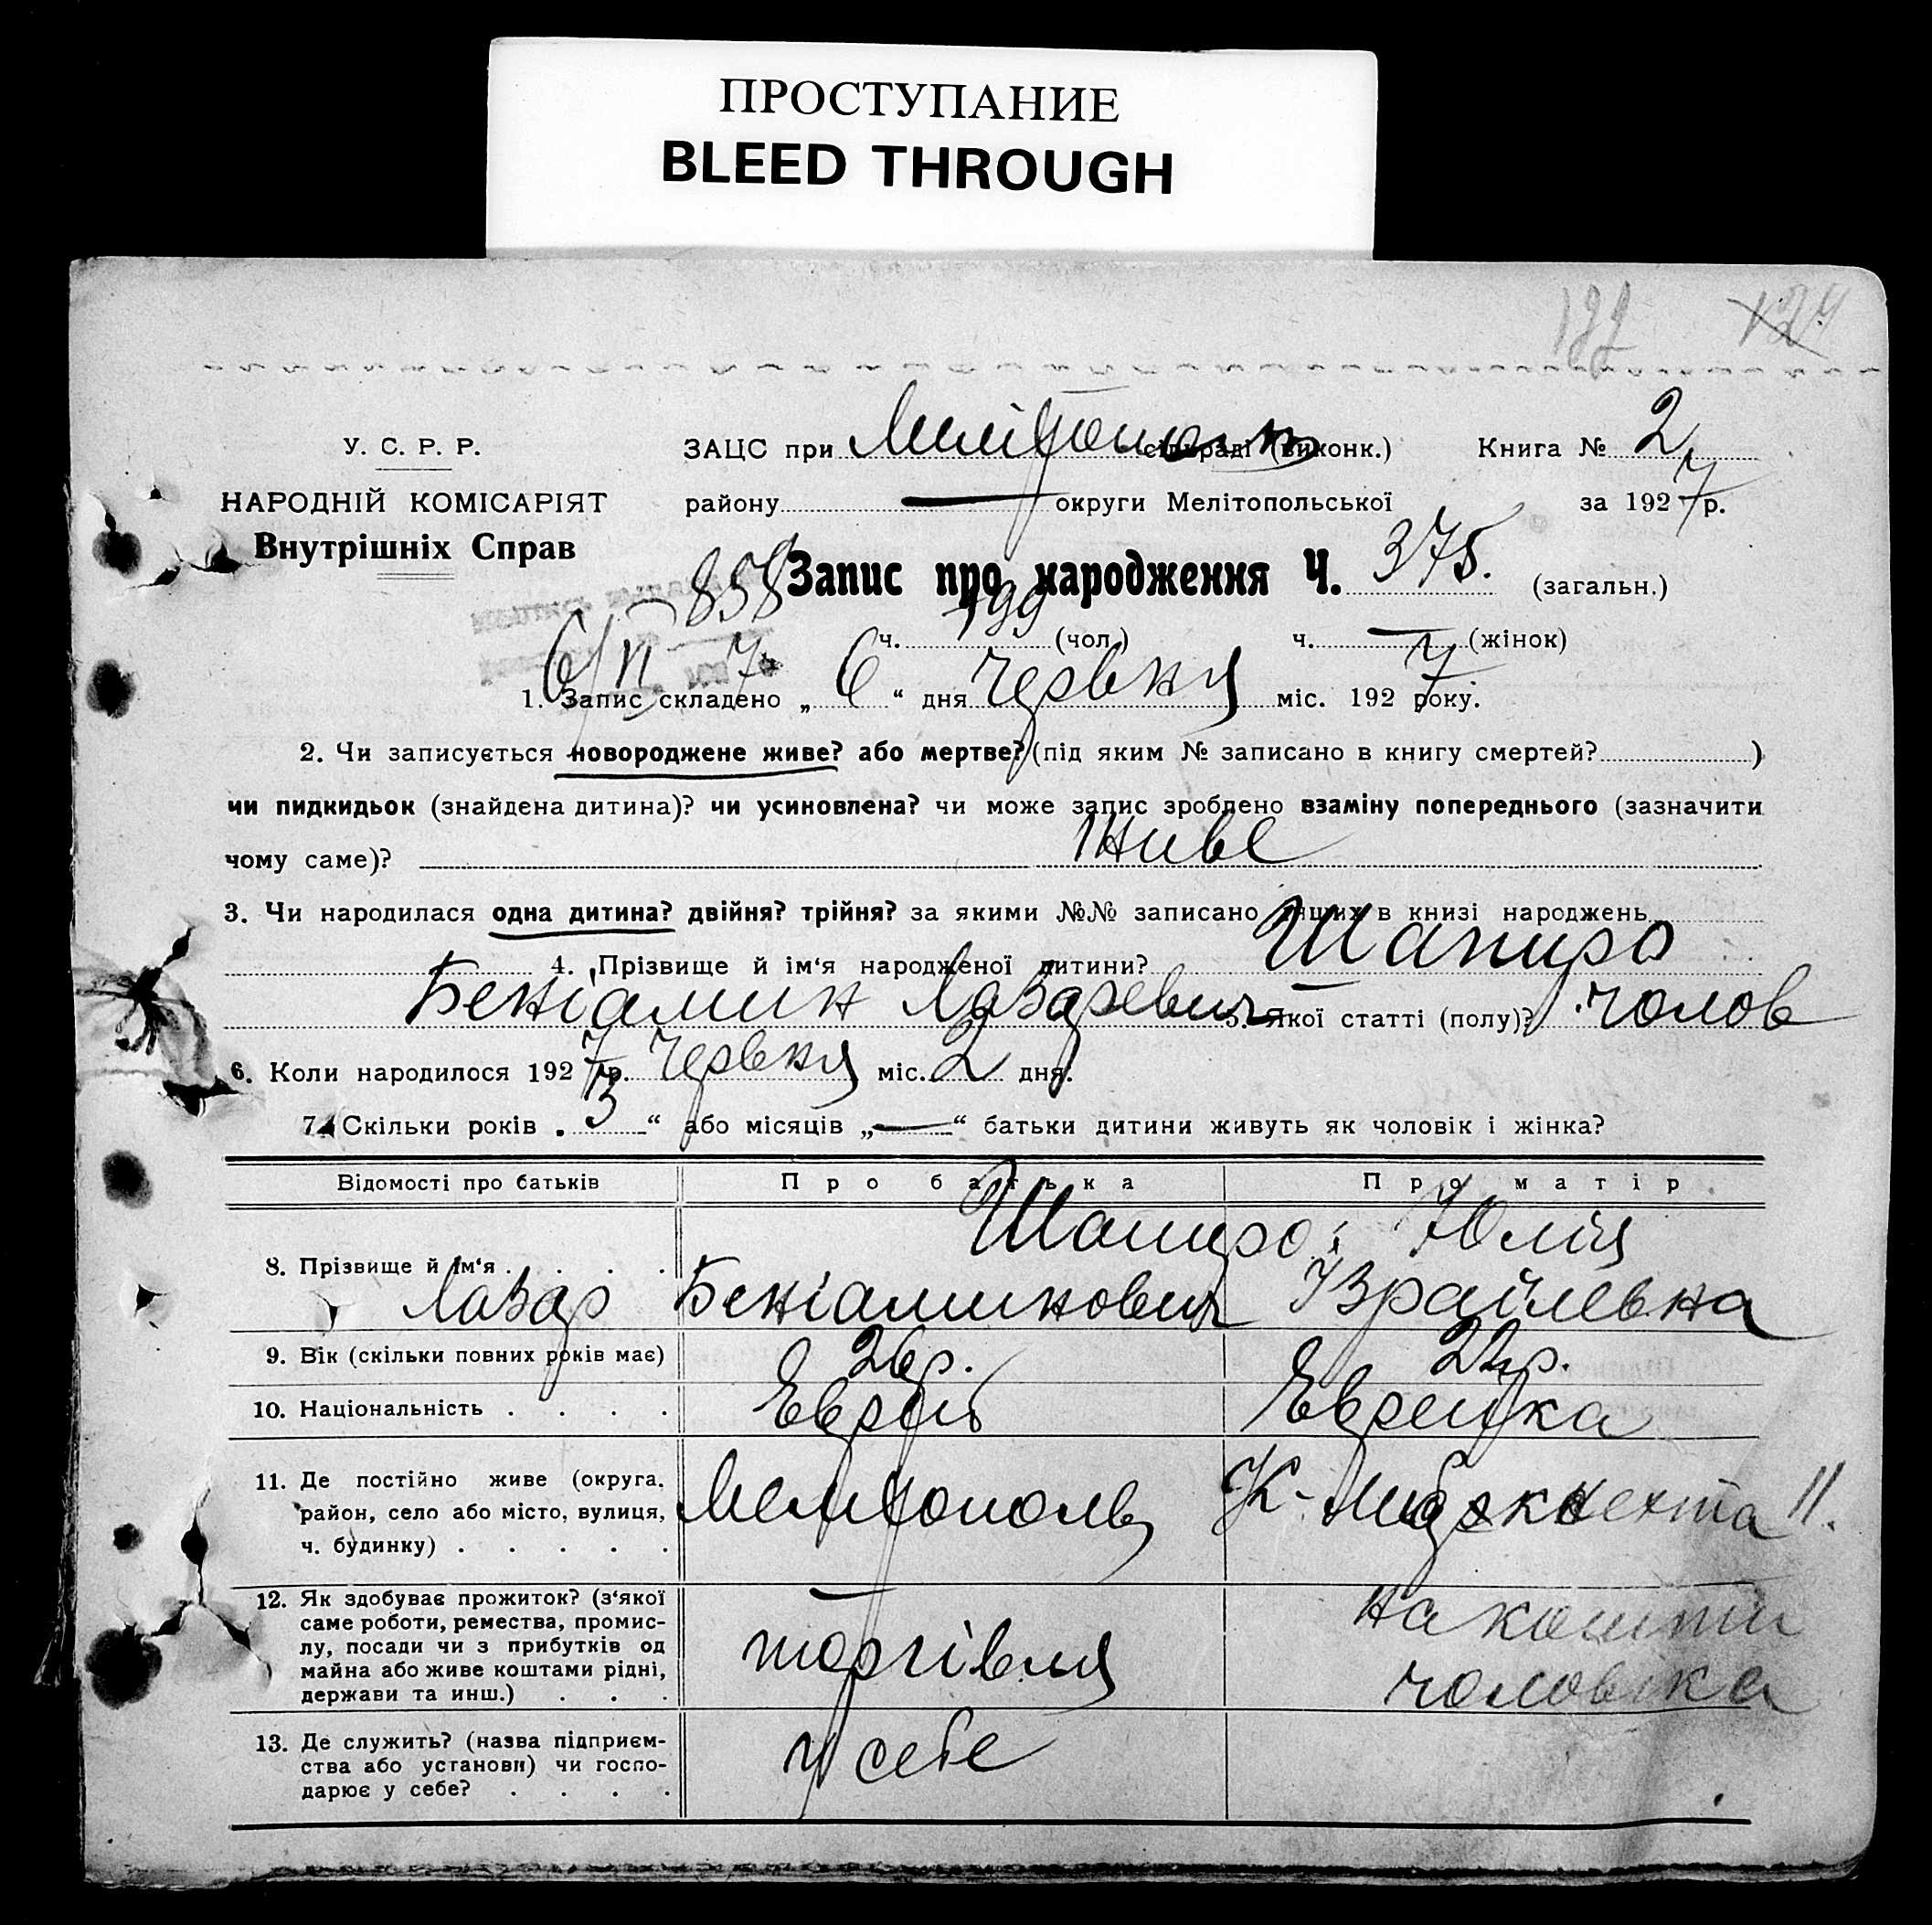 ПРОСТУПАНИЕ
BLEED THROUGH
У. С. Р. Р.
НАРОДНІЙ КОМІСАРІЯТ
Внутрішніх Справ
ЗАЦС при Мелітополь сільраді (виконк.) Книга № 2
району — округи Мелітопольської за 1927 р.
858 Запис про народження Ч. 375. (загальн.)
ч. 199 (чол.) ч. — (жінок)
6/VI 7
1. Запис складено „ 6 “ дня червня міс. 1927 року.
2. Чи записується новороджене живе? або мертве? (під яким № записано в книгу смертей? )
чи пидкидьок (знайдена дитина)? чи усиновлена? чи може запис зроблено взаміну попереднього (зазначити
чому саме)? Живе
3. Чи народилася одна дитина? двійня? трійня? за якими №№ записано инших в книзі народжень
4. Прізвище й ім'я народженої дитини? Шапиро
Беніамин Лазаревич 5. Якої статті (полу)? чолов
6. Коли народилося 1927 р. червня міс. 2 дня.
7. Скільки років „ 3 “ або місяців „—“ батьки дитини живуть як чоловік і жінка?
Відомості про батьків Про батька Про матір
8. Прізвище й ім'я . . . . Шапиро: Юлія
Лазар Беніаминович Ізраілевна
9. Вік (скільки повних років має) 26р. 22р.
10. Національність . . . . Еврей Еврейка
11. Де постійно живе (округа,
район, село або місто, вулиця,
ч. будинку) . . . . .
Мелітополь К-Либкнехта 11.
12. Як здобуває прожиток? (з'якої
саме роботи, ремества, промис-
лу, посади чи з прибутків од
майна або живе коштами рідні,
держави та инш.) . . .
торгівля на кошти
чоловіка
13. Де служить? (назва підприєм-
ства або установи) чи госпо-
дарює у себе? . . . .
у себе